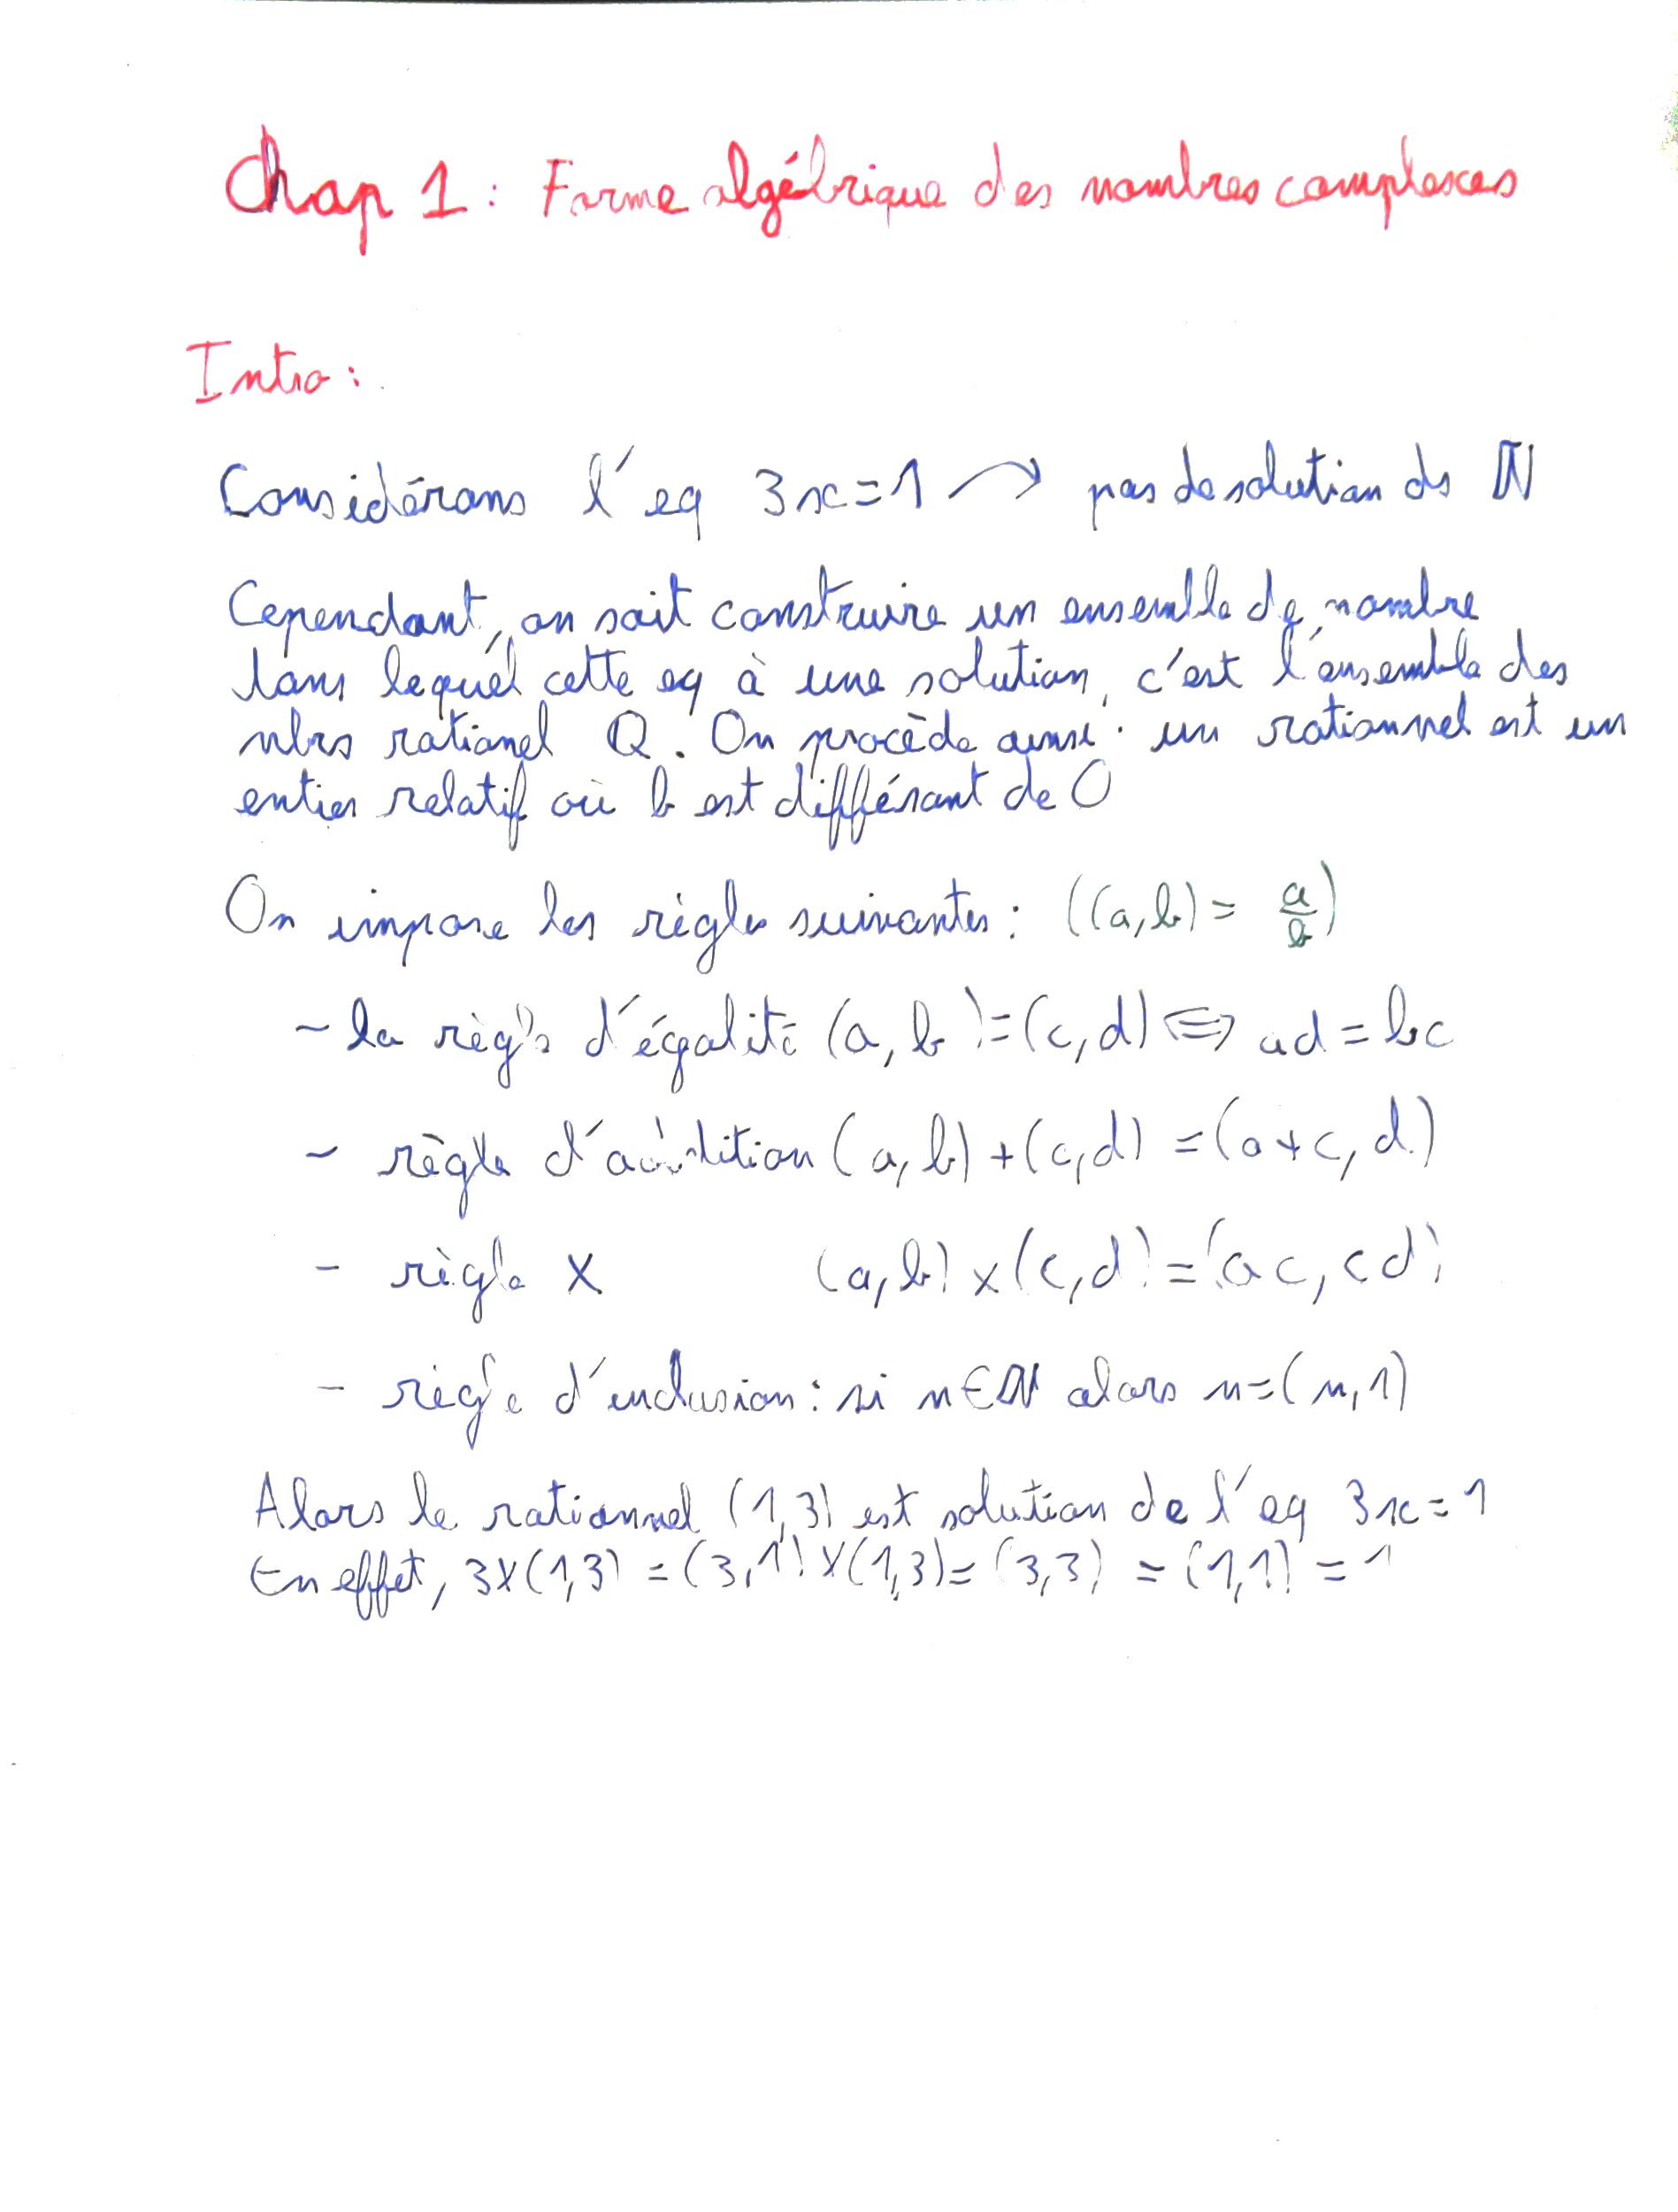 Chap 1 : Forme algébrique des nombres complexes
Intro :
Considérons l'eq 3x=1 → pas de solution ds ℕ
Cependant, on sait construire un ensemble de nombre
dans lequel cette eq à une solution, c'est l'ensemble des
nbrs rationel Q. On procède ainsi : un rationnel est un
entier relatif où b est différant de 0
On impose les règles suivantes : ((a,b) = a/b)
- la règle d'égalité (a, b) = (c,d) ⟺ ad = bc
- règle d'addition (a, b) + (c,d) = (a+c, d)
- règle x (a, b) x (c, d) = (ac, cd)
- règle d'inclusion : si n∈ℕ alors n=(n,1)
Alors le rationnel (1,3) est solution de l'eq 3x=1
En effet, 3x(1,3) = (3,1) x (1,3) = (3,3) = (1,1) = 1